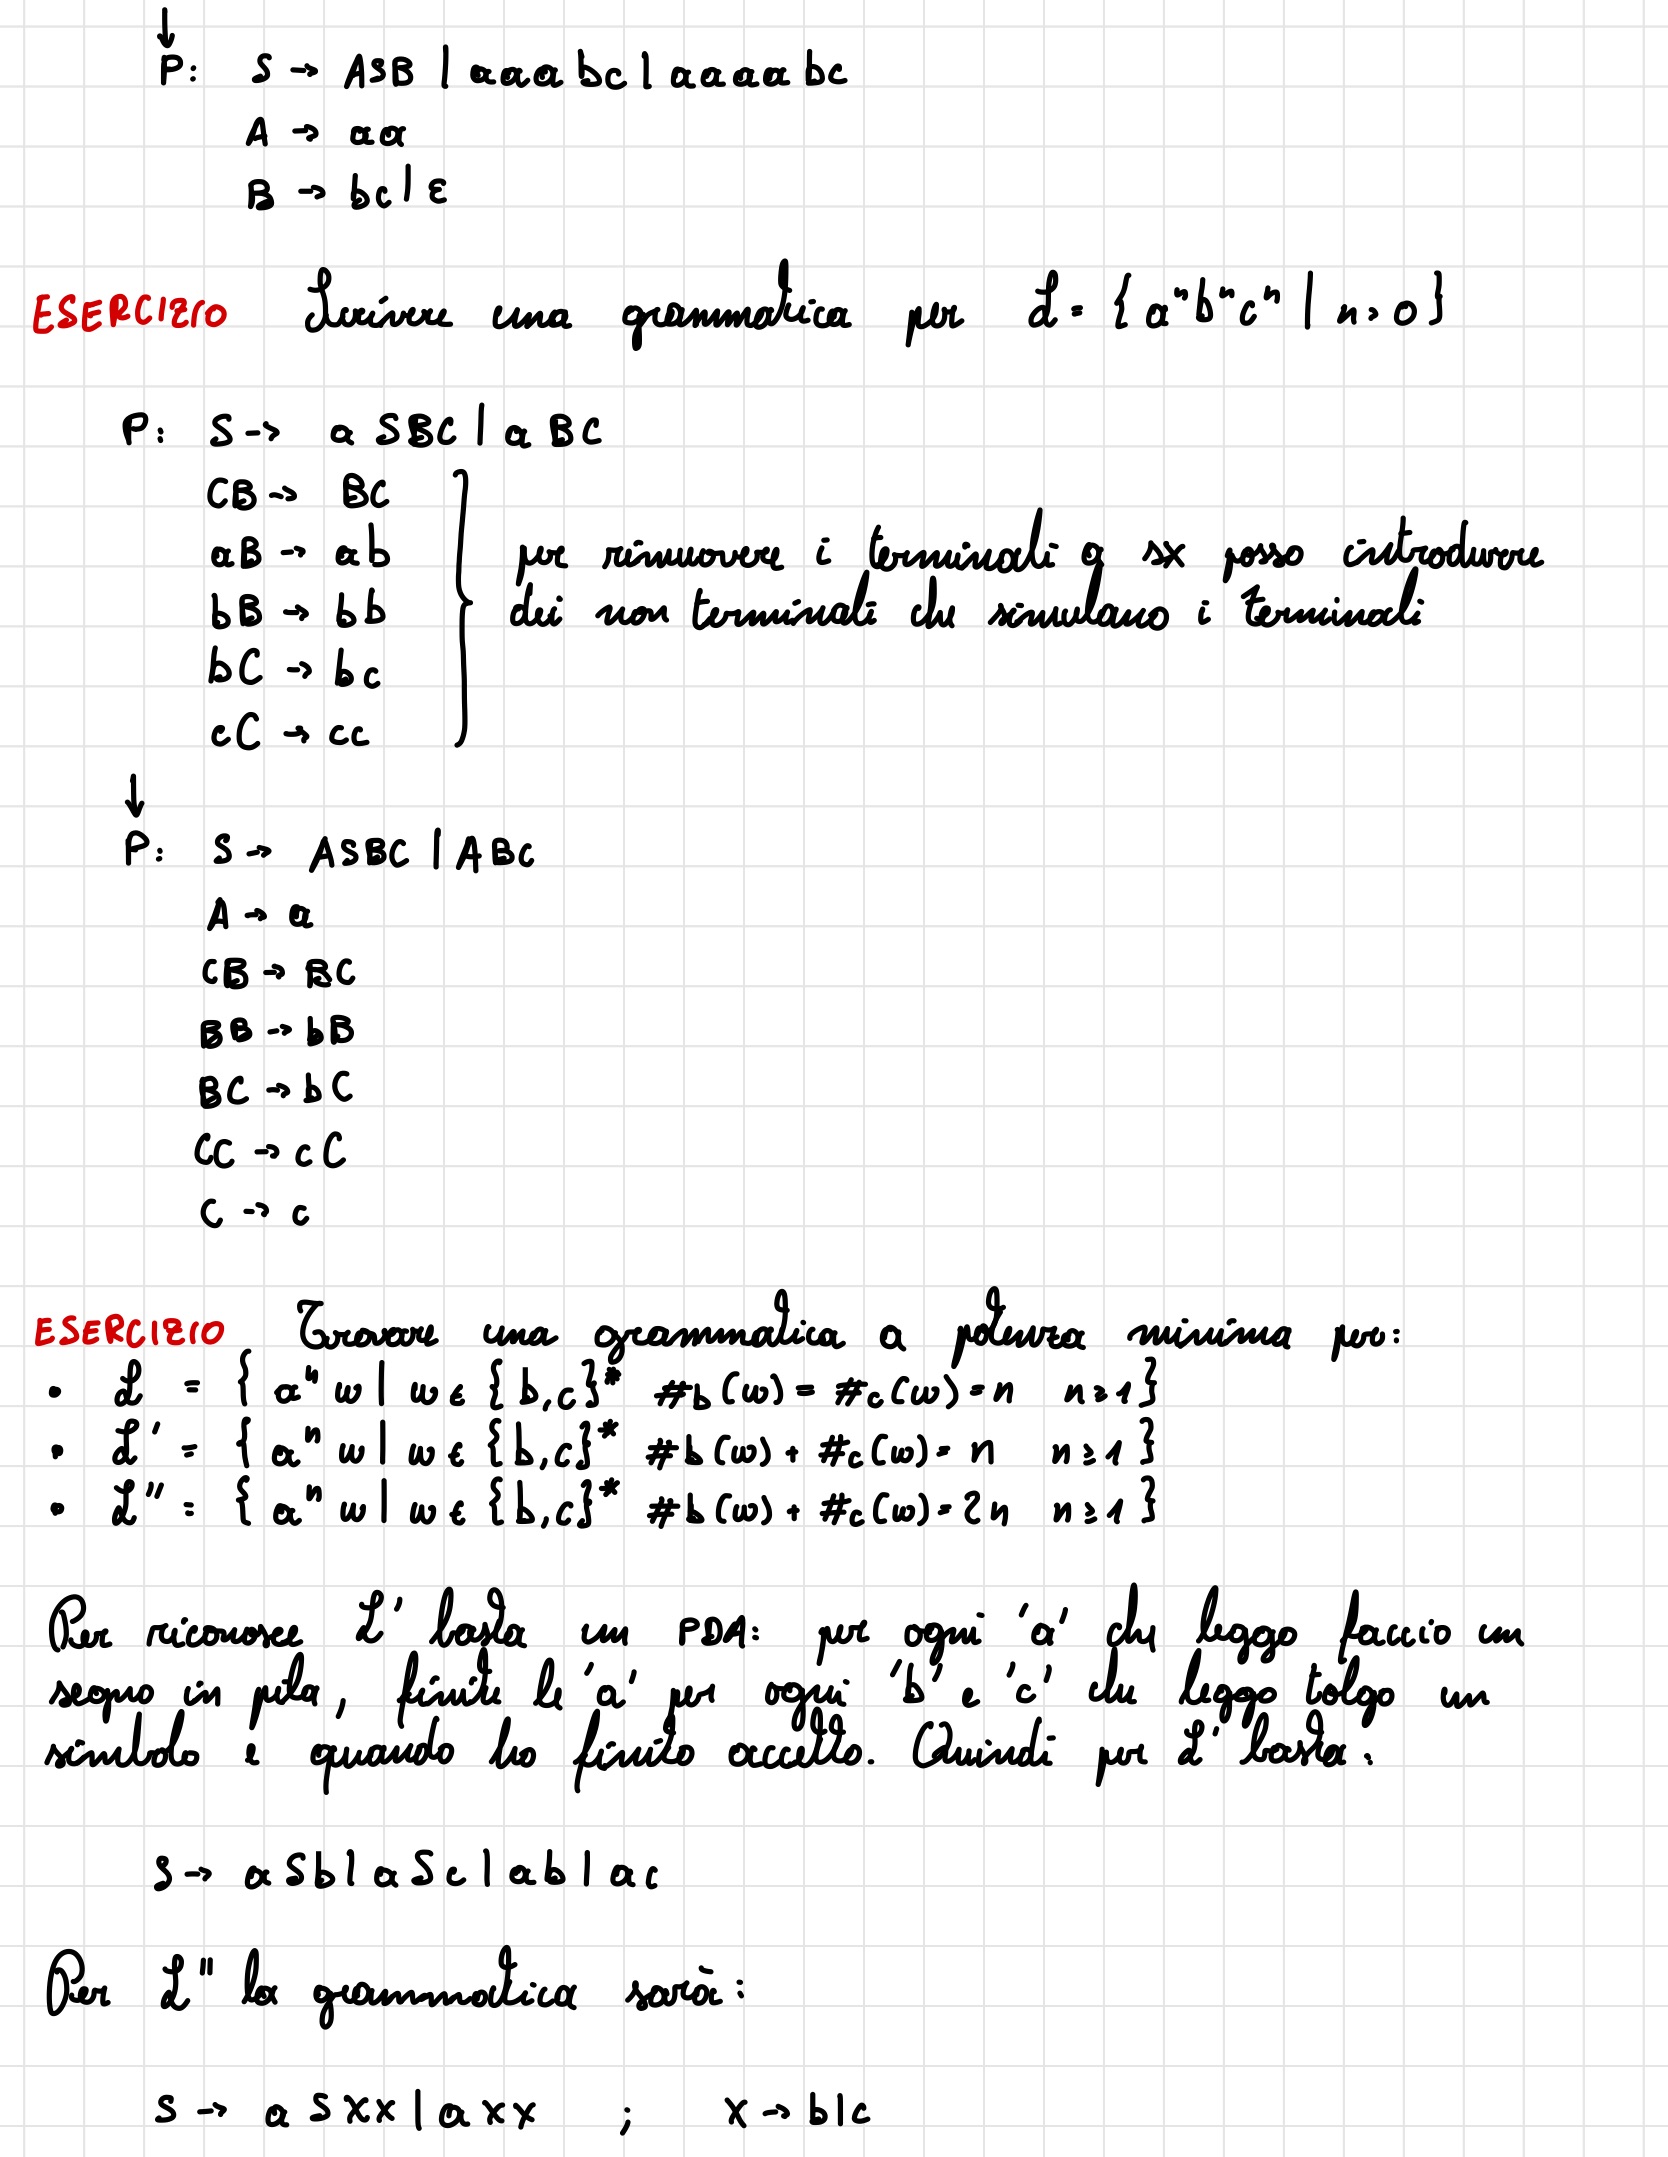 ↓
P: S → ASB | aaabc | aaaabc
A → aa
B → bc | ε
ESERCIZIO Scrivere una grammatica per L = { aⁿbⁿcⁿ | n > 0 }
P: S → aSBC | aBC
CB → BC
aB → ab
bB → bb
bC → bc
cC → cc
per rimuovere i terminali a sx posso introdurre
dei non terminali che simulano i terminali
↓
P: S → ASBC | ABC
A → a
CB → BC
BB → bB
BC → bC
CC → cC
C → c
ESERCIZIO Trovare una grammatica a potenza minima per:
• L = { aⁿ w | w ∈ {b,c}* #b(w) = #c(w) = n n ≥ 1 }
• L' = { aⁿ w | w ∈ {b,c}* #b(w) + #c(w) = n n ≥ 1 }
• L'' = { aⁿ w | w ∈ {b,c}* #b(w) + #c(w) = 2n n ≥ 1 }
Per riconosce L' basta un PDA: per ogni 'a' che leggo faccio un
segno in pila, finite le 'a' per ogni 'b' e 'c' che leggo tolgo un
simbolo e quando ho finito accetto. Quindi per L' basta:
S → aSb | aSc | ab | ac
Per L'' la grammatica sarà:
S → aSXX | aXX ; X → b | c